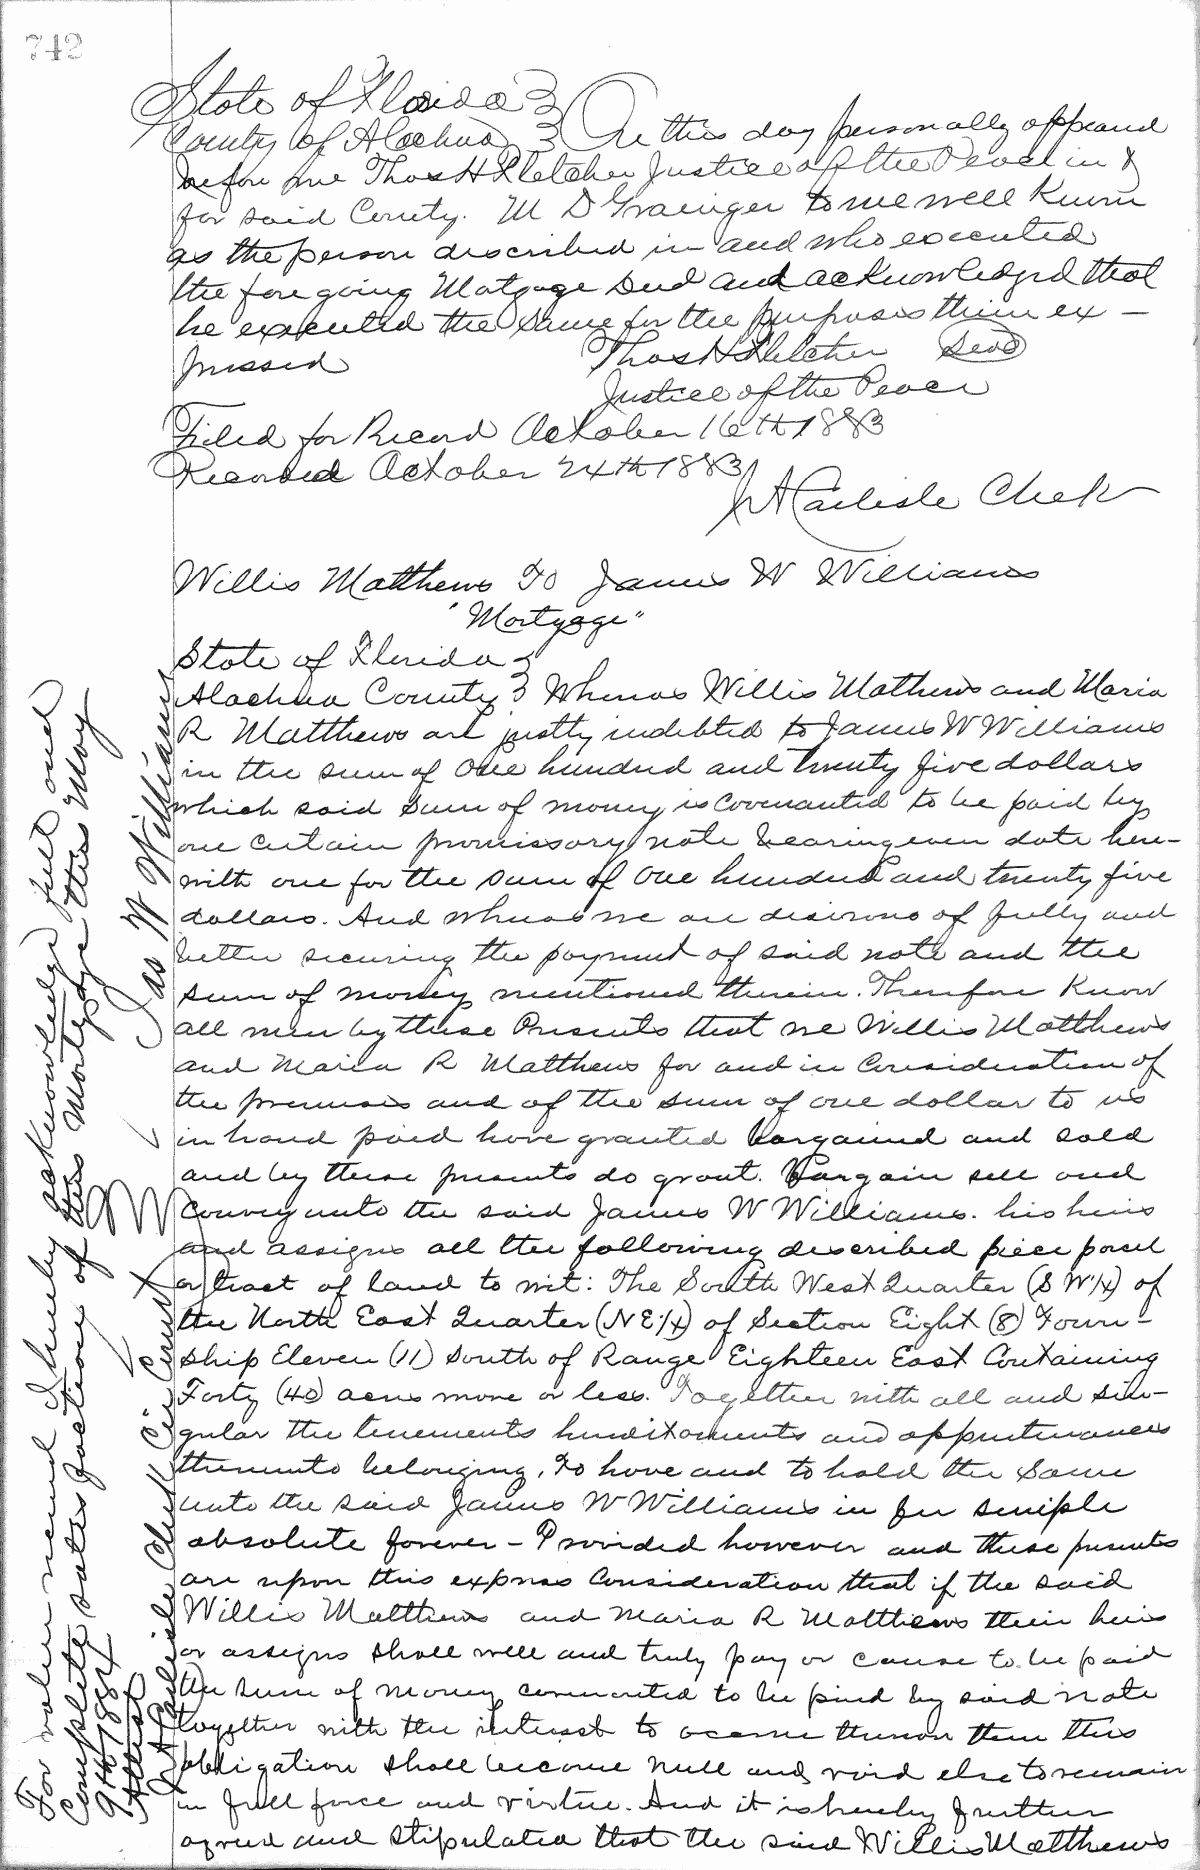 742
State of Florida }
County of Alachua } On this day personally appeard
before me Thos H Fletcher Justice of the Peace in &
for said County. M D Grainger to me well Known
as the person described in and who executed
the fore going Matgage Deed and acknowledged that
he executed the same for the purposes therein ex-
pressed Thos H Fletcher Seal
Justice of the Peace
Filed for Record October 16th 1883
Recorded October 24th 1883
J A Carlisle Clerk
Willis Matthews To James W Williams
"Mortgage"
State of Florida }
Alachua County } Whereas Willis Mathews and Maria
R Matthews are justly indebted to James W Williams
in the sum of One hundred and twenty five dollars
which said sum of money is covenanted to be paid by
one certain promissory note bearing even date here-
with one for the sum of One hundred and twenty five
dollars. And whereas we are desirous of fully and
better securing the payment of said note and the
sum of money mentioned therein. Therefore Know
all men by these Presents that we Willis Matthews
and Maria R Matthews for and in Consideration of
the premises and of the sum of one dollar to us
in hand paid have granted bargained and sold
and by these presents do grant. Bargain sell and
Convey unto the said James W Williams. his heirs
and assigns all the following described piece parcel
or tract of land to wit: The South West Quarter (S W 1/4) of
the North East Quarter (N E 1/4) of Section Eight (8) Town-
ship Eleven (11) South of Range Eighteen East Containing
Forty (40) acres more or less. Together with all and sin-
gular the tenements hereditaments and appurtenances
thereunto belonging, To have and to hold the same
unto the said James W Williams in fee simple
absolute forever - Provided however and these presents
are upon this express Consideration that if the said
Willis Matthews and Maria R Matthews their heirs
or assigns shall well and truly pay or cause to be paid
the sum of money convenanted to be paid by said note
together with the interest to accrue thereon then this
obligation shall become null and void else to remain
in full force and virtue. And it is hereby further
agreed and stipulated that the said Willis Matthews
For value received I hereby acknowledge full and
Complete satisfaction of this Mortgage this May
9th 1884 Jas W Williams
Attest
J A Carlisle Clerk Cir Court